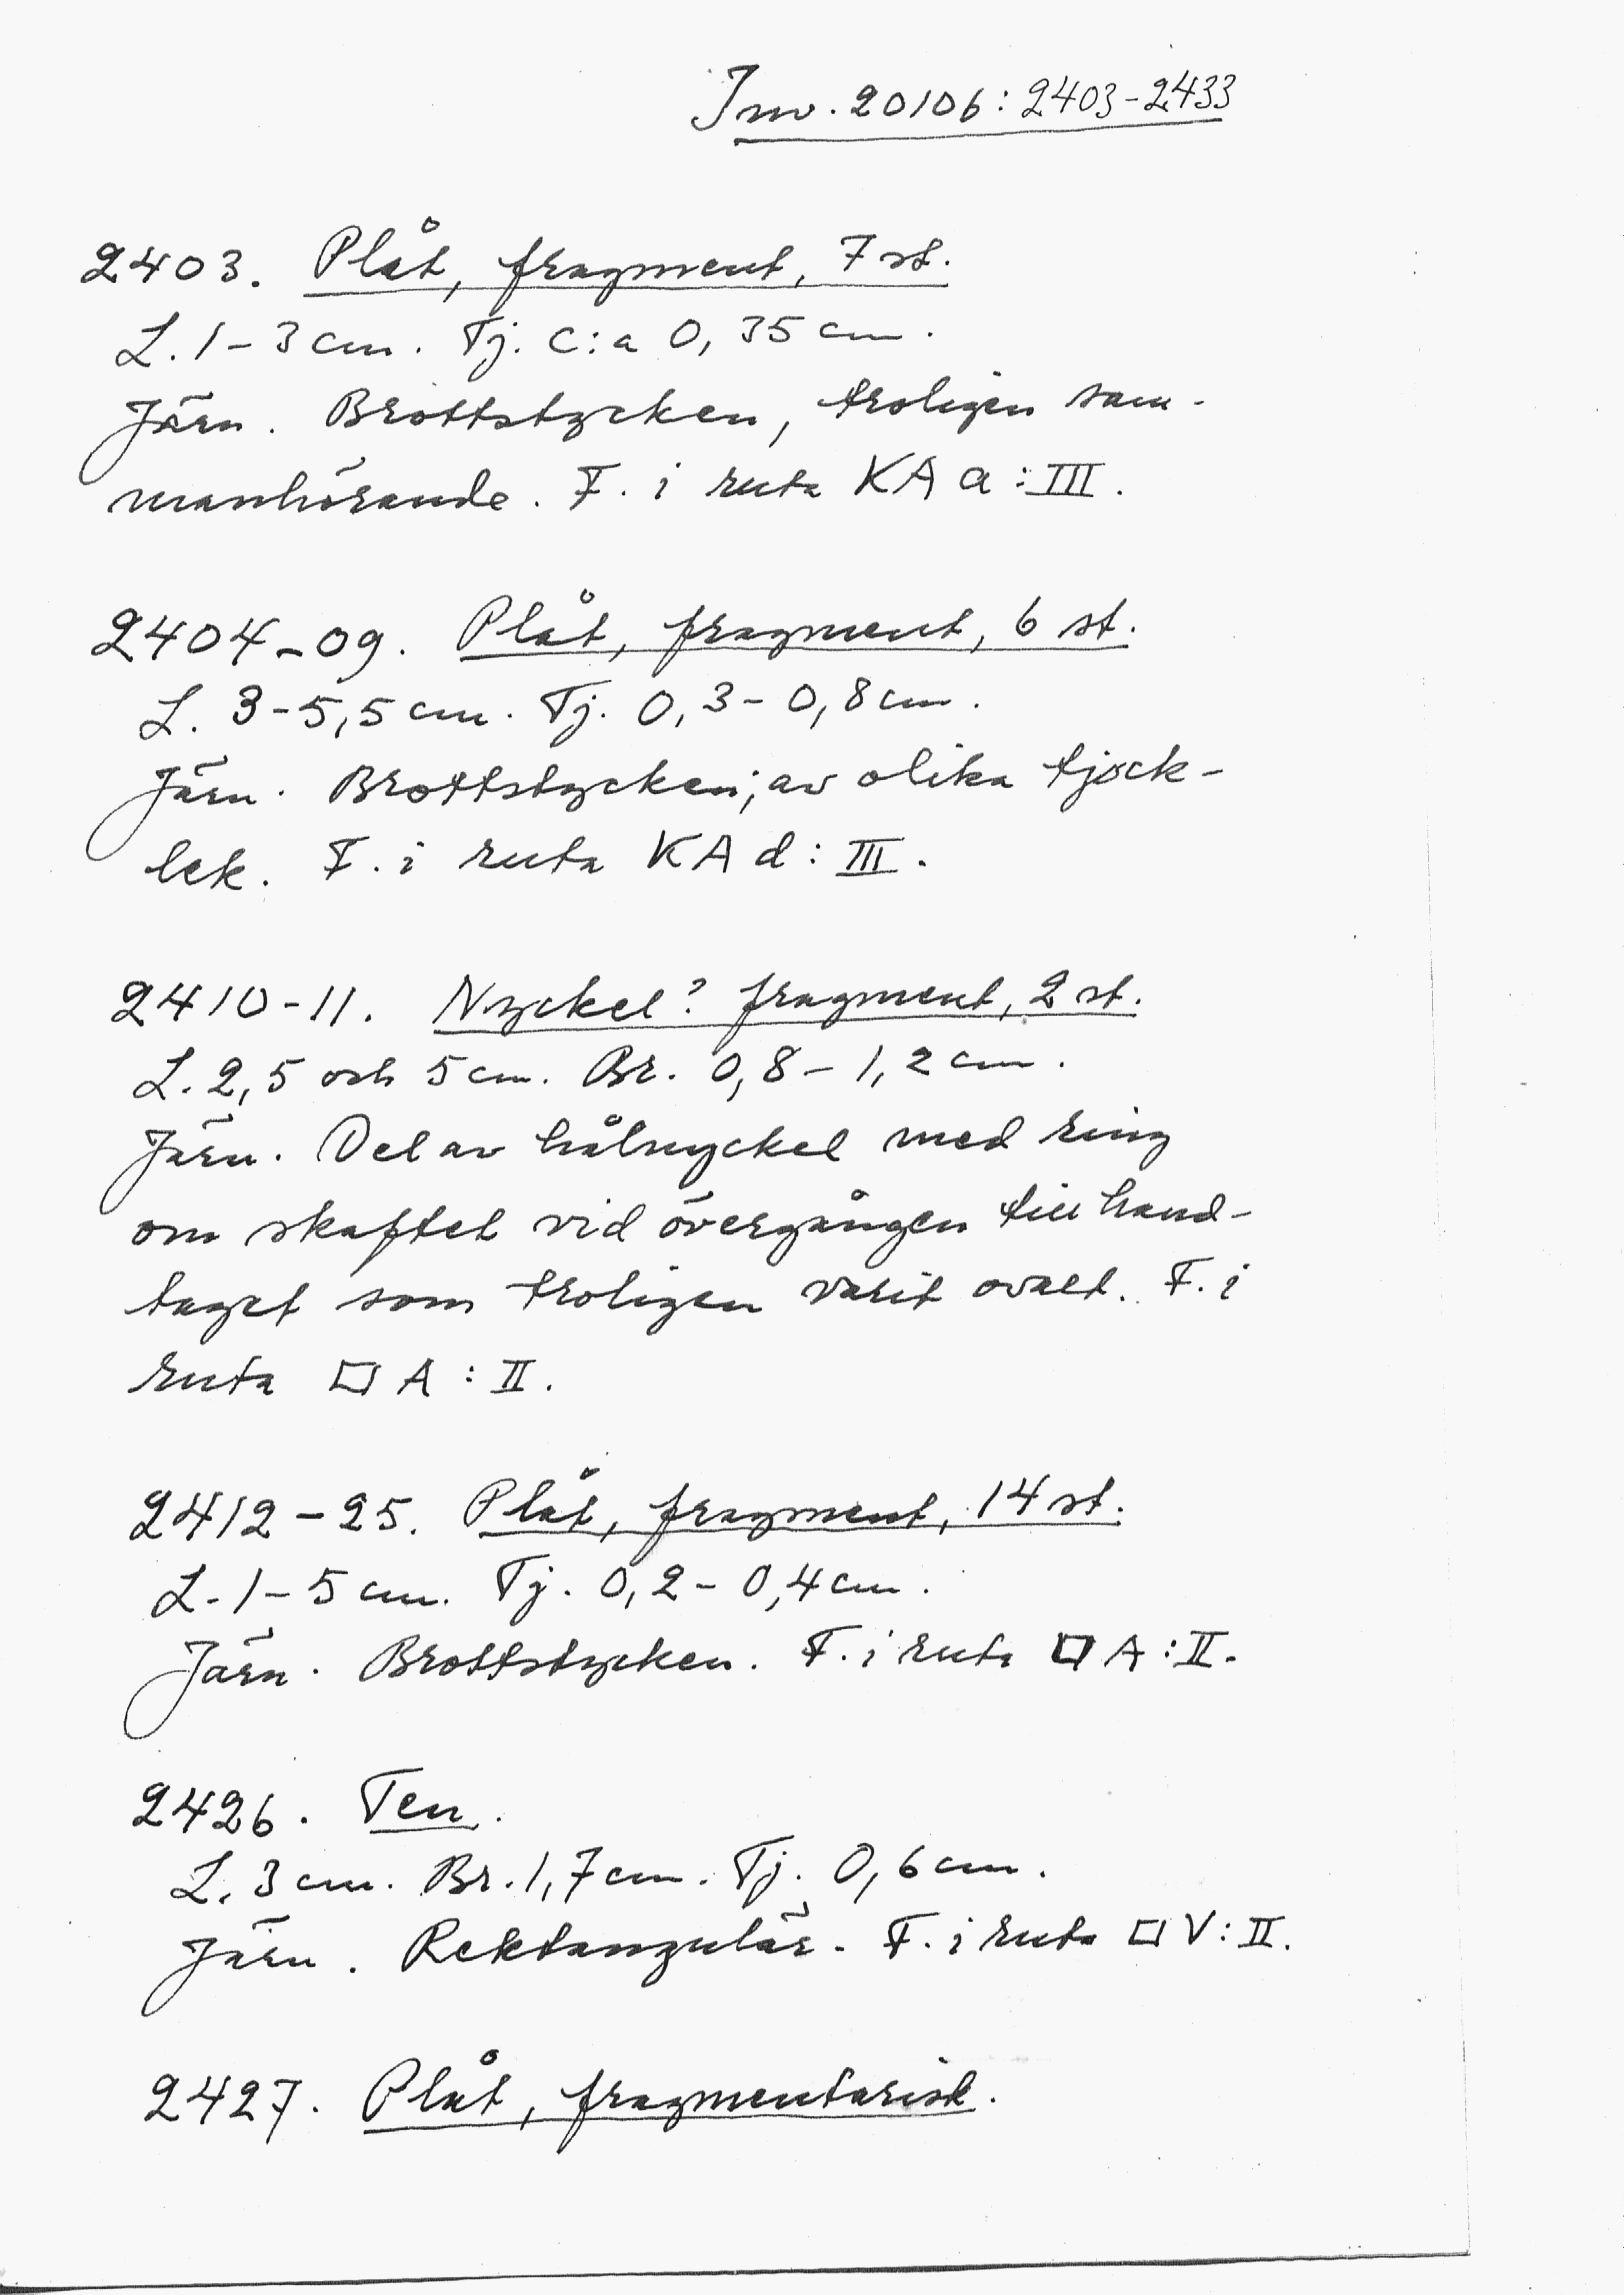 Inv. 20106: 2403-2433
2403. Plåt, fragment, 7 st.
L. 1-3 cm. Tj. c:a 0,35 cm.
Järn. Brottstycken, troligen sam-
manhörande. F. i ruta KA a: III.
2404-09. Plåt, fragment, 6 st.
L. 3-5,5 cm. Tj. 0,3-0,8 cm.
Järn. Brottstycken; av olika tjock-
lek. F. i ruta KA d: III.
2410-11. Nyckel? fragment, 2 st.
L. 2,5 och 5 cm. Br. 0,8-1,2 cm.
Järn. Del av hålnyckel med ring
om skaftet vid övergången till hand-
taget som troligen varit ovalt. F. i
ruta □ A: II.
2412-25. Plåt, fragment, 14 st.
L. 1-5 cm. Tj. 0,2-0,4 cm.
Järn. Brottstycken. F. i ruta □ A: II.
2426. Ten.
L. 3 cm. Br. 1,7 cm. Tj. 0,6 cm.
Järn. Rektangulär. F. i ruta □ V: II.
2427. Plåt, fragmentarisk.